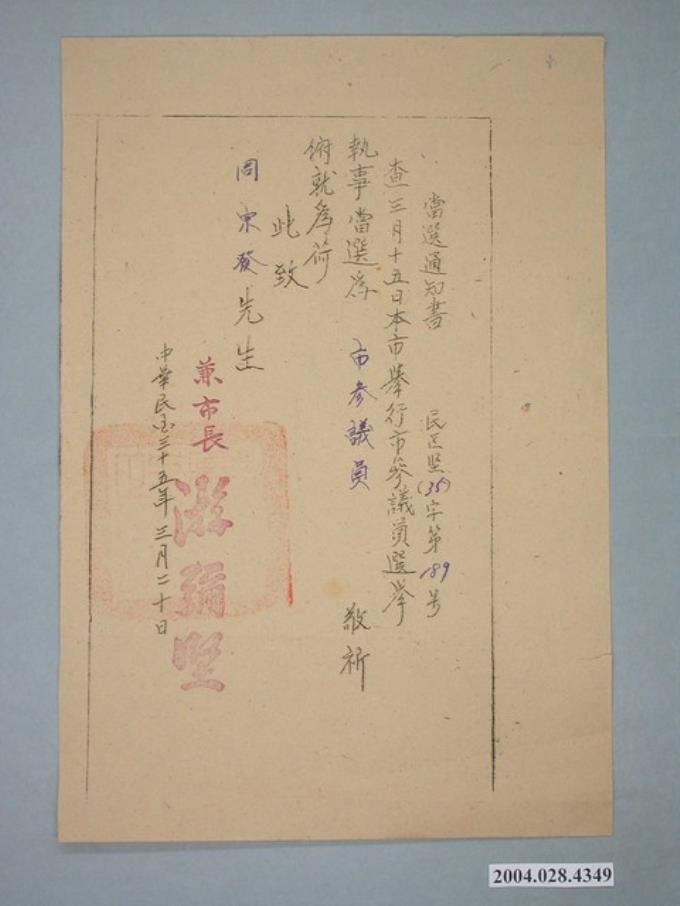 當選通知書 民丘堅(35)字第189号
查三月十五日本市舉行市參議員選挙
執事當選為 市參議員 敬祈
俯就為荷
此致
周東發先生
兼市長 游彌堅
中華民国三十五年三月二十日
2004.028.4349